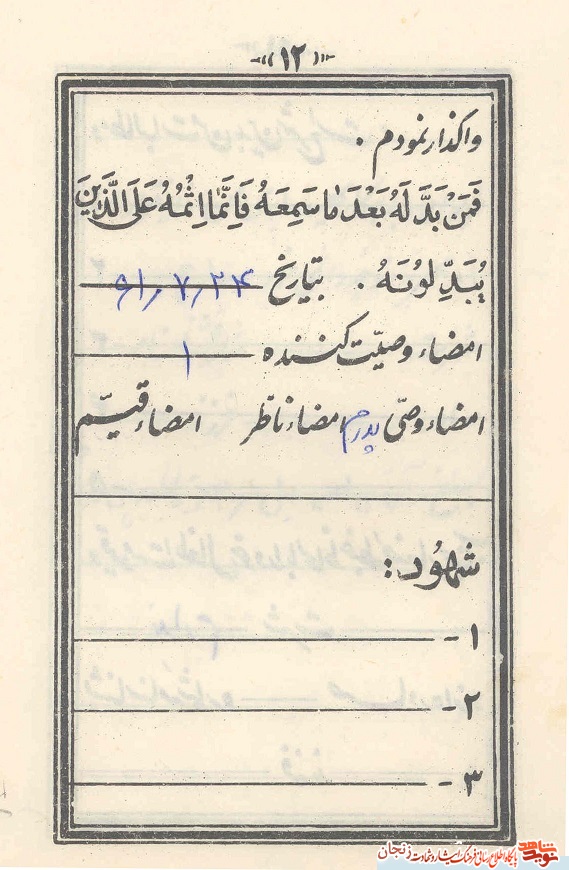 «۱۲»
واگذار نمودم .
فَمَنْ بَدَّلَهُ بَعْدَ مٰا سَمِعَهُ فَاِنَّمٰا اِثْمُهُ عَلَی الَّذینَ
یُبَدِّلوُنَهُ . بتاریخ ۶۱٫۷٫۲۴
امضاء وصیّت کننده ۱
امضاء وصّی پدرم امضاء ناظر امضاء قیّم
شهُود :
۱ -
۲ -
۳ -
نوید شاهد پایگاه اطلاع رسانی فرهنگ ایثار و شهادت زنجان